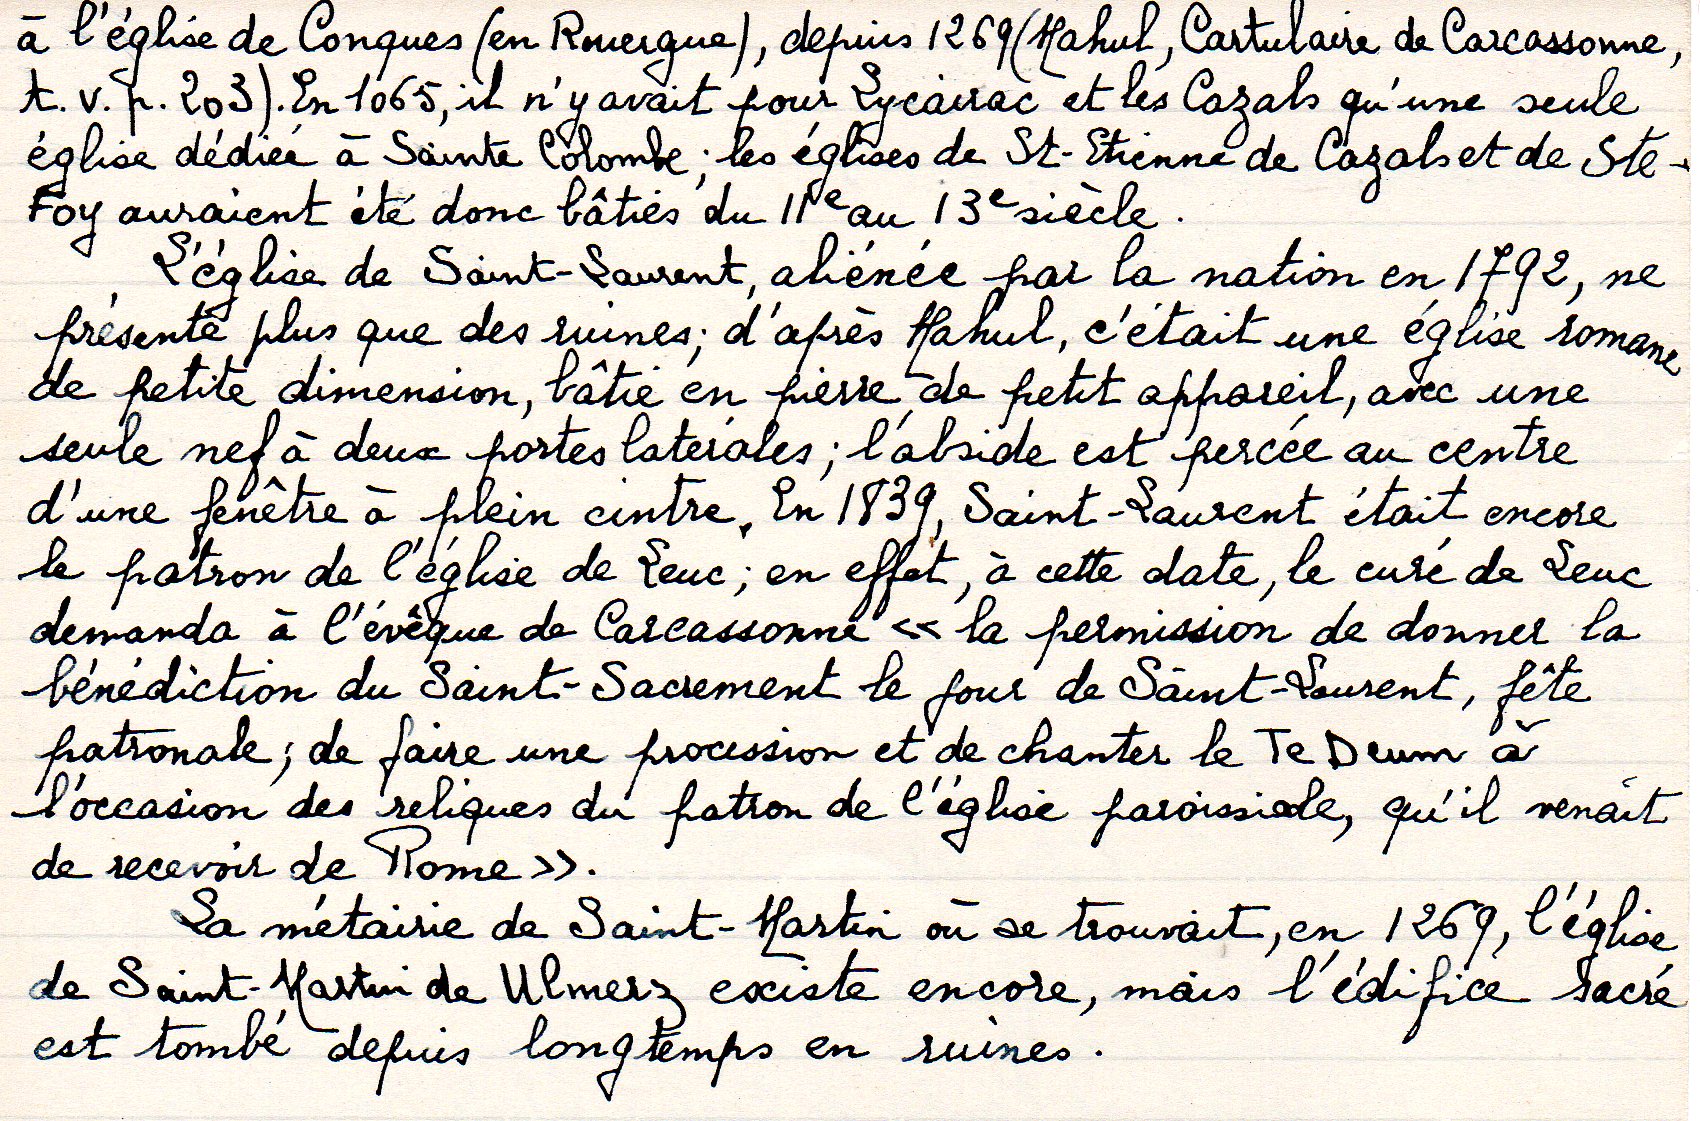 à l'église de Conques (en Rouergue), depuis 1269 (Mahul, Cartulaire de Carcassonne,
t. v. p. 203). En 1065, il n'y avait pour Lycairac et les Cazals qu'une seule
église dédiée à Sainte Colombe; les églises de St-Etienne de Cazals et de Ste-
Foy auraient été donc bâties du 11e au 13e siècle.
L'église de Saint-Laurent, aliénée par la nation en 1792, ne
présente plus que des ruines; d'après Mahul, c'était une église romane
de petite dimension, bâtie en pierre de petit appareil, avec une
seule nef à deux portes latérales; l'abside est percée au centre
d'une fenêtre à plein cintre. En 1839, Saint-Laurent était encore
le patron de l'église de Leuc; en effet, à cette date, le curé de Leuc
demanda à l'évêque de Carcassonne << la permission de donner la
bénédiction du Saint-Sacrement le jour de Saint-Laurent, fête
patronale; de faire une procession et de chanter le Te Deum à
l'occasion des reliques du patron de l'église paroissiale, qu'il venait
de recevoir de Rome >>.
La métairie de Saint-Martin où se trouvait, en 1269, l'église
de Saint-Martin de Ulmerz existe encore, mais l'édifice sacré
est tombé depuis longtemps en ruines.